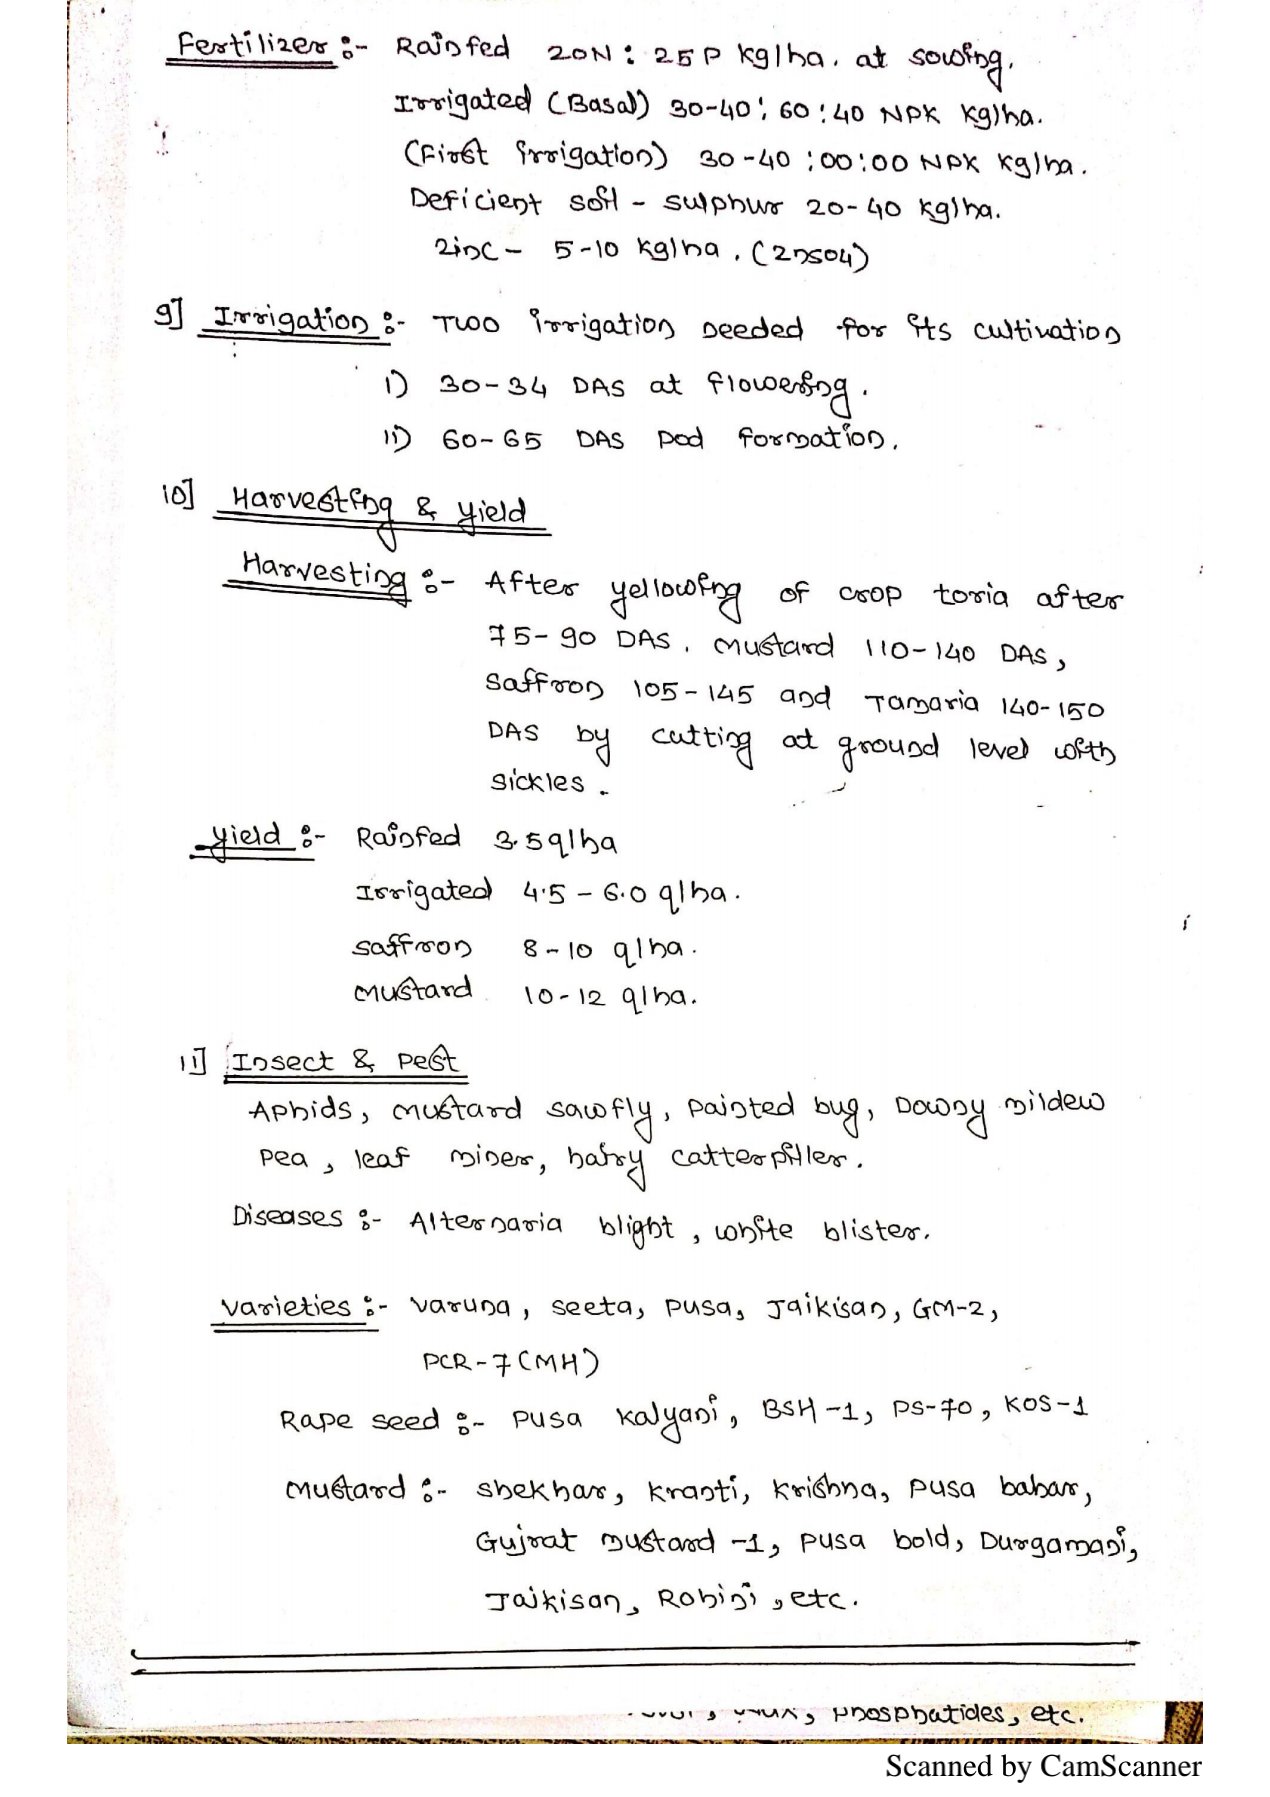 Fertilizer :- Rainfed 20N : 25P kg/ha. at sowing.
Irrigated (Basal) 30-40 : 60 : 40 NPK kg/ha.
(First irrigation) 30-40 : 00 : 00 NPK kg/ha.
Deficient soil - sulphur 20-40 kg/ha.
zinc - 5-10 kg/ha. (znso4)
9] Irrigation :- Two irrigation needed for its cultivation
i) 30-34 DAS at flowering.
ii) 60-65 DAS pod formation.
10] Harvesting & yield
Harvesting :- After yellowing of crop toria after
75-90 DAS. mustard 110-140 DAS,
saffron 105-145 and Tamaria 140-150
DAS by cutting at ground level with
sickles.
yield :- Rainfed 3.5 q/ha
Irrigated 4.5 - 6.0 q/ha.
saffron 8-10 q/ha.
mustard 10-12 q/ha.
11] Insect & pest
Aphids, mustard sawfly, painted bug, Downy mildew
pea, leaf miner, hairy catterpiller.
Diseases :- Alternaria blight, white blister.
varieties :- varuna, seeta, pusa, Jaikisan, GM-2,
PCR-7 (MH)
Rape seed :- pusa kalyani, BSH-1, PS-70, KOS-1
mustard :- shekhar, kranti, krishna, pusa bahar,
Gujrat mustard -1, pusa bold, Durgamani,
Jaikisan, Rohini, etc.
phosphatides, etc.
Scanned by CamScanner